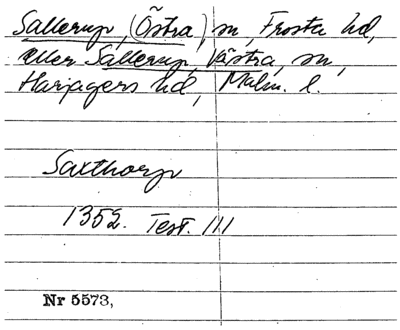 Sallerup, (Östra) sn, Frosta hd,
eller Sallerup, Västra, sn,
Harjagers hd, Malm. l.
Saxthorp
1352. Test. III
Nr 5573,